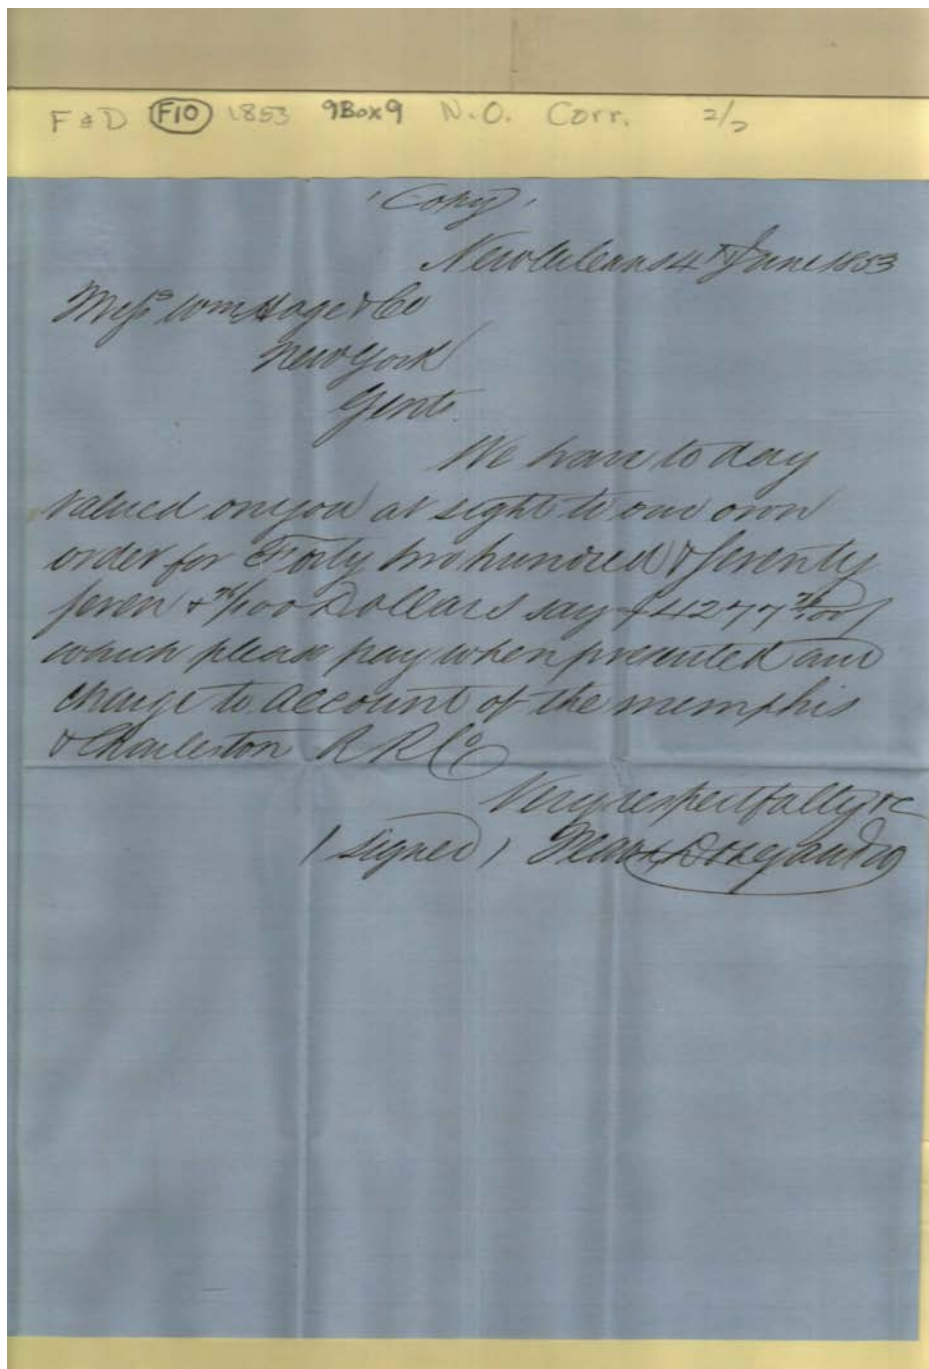 F & D F10 1853 9Box9 N.O. Corr. 2/2
"Copy"
New Orleans 4th June 1853
Messrs Wm Hoge & Co
New York
Gents.
We have to day
valued on you at sight to our own
order for Forty two hundred & seventy
seven & 76/100 Dollars say $4277 76/100
which please pay when presented and
charge to account of the Memphis
& Charleston R R Co
Very respectfully &c
(signed)